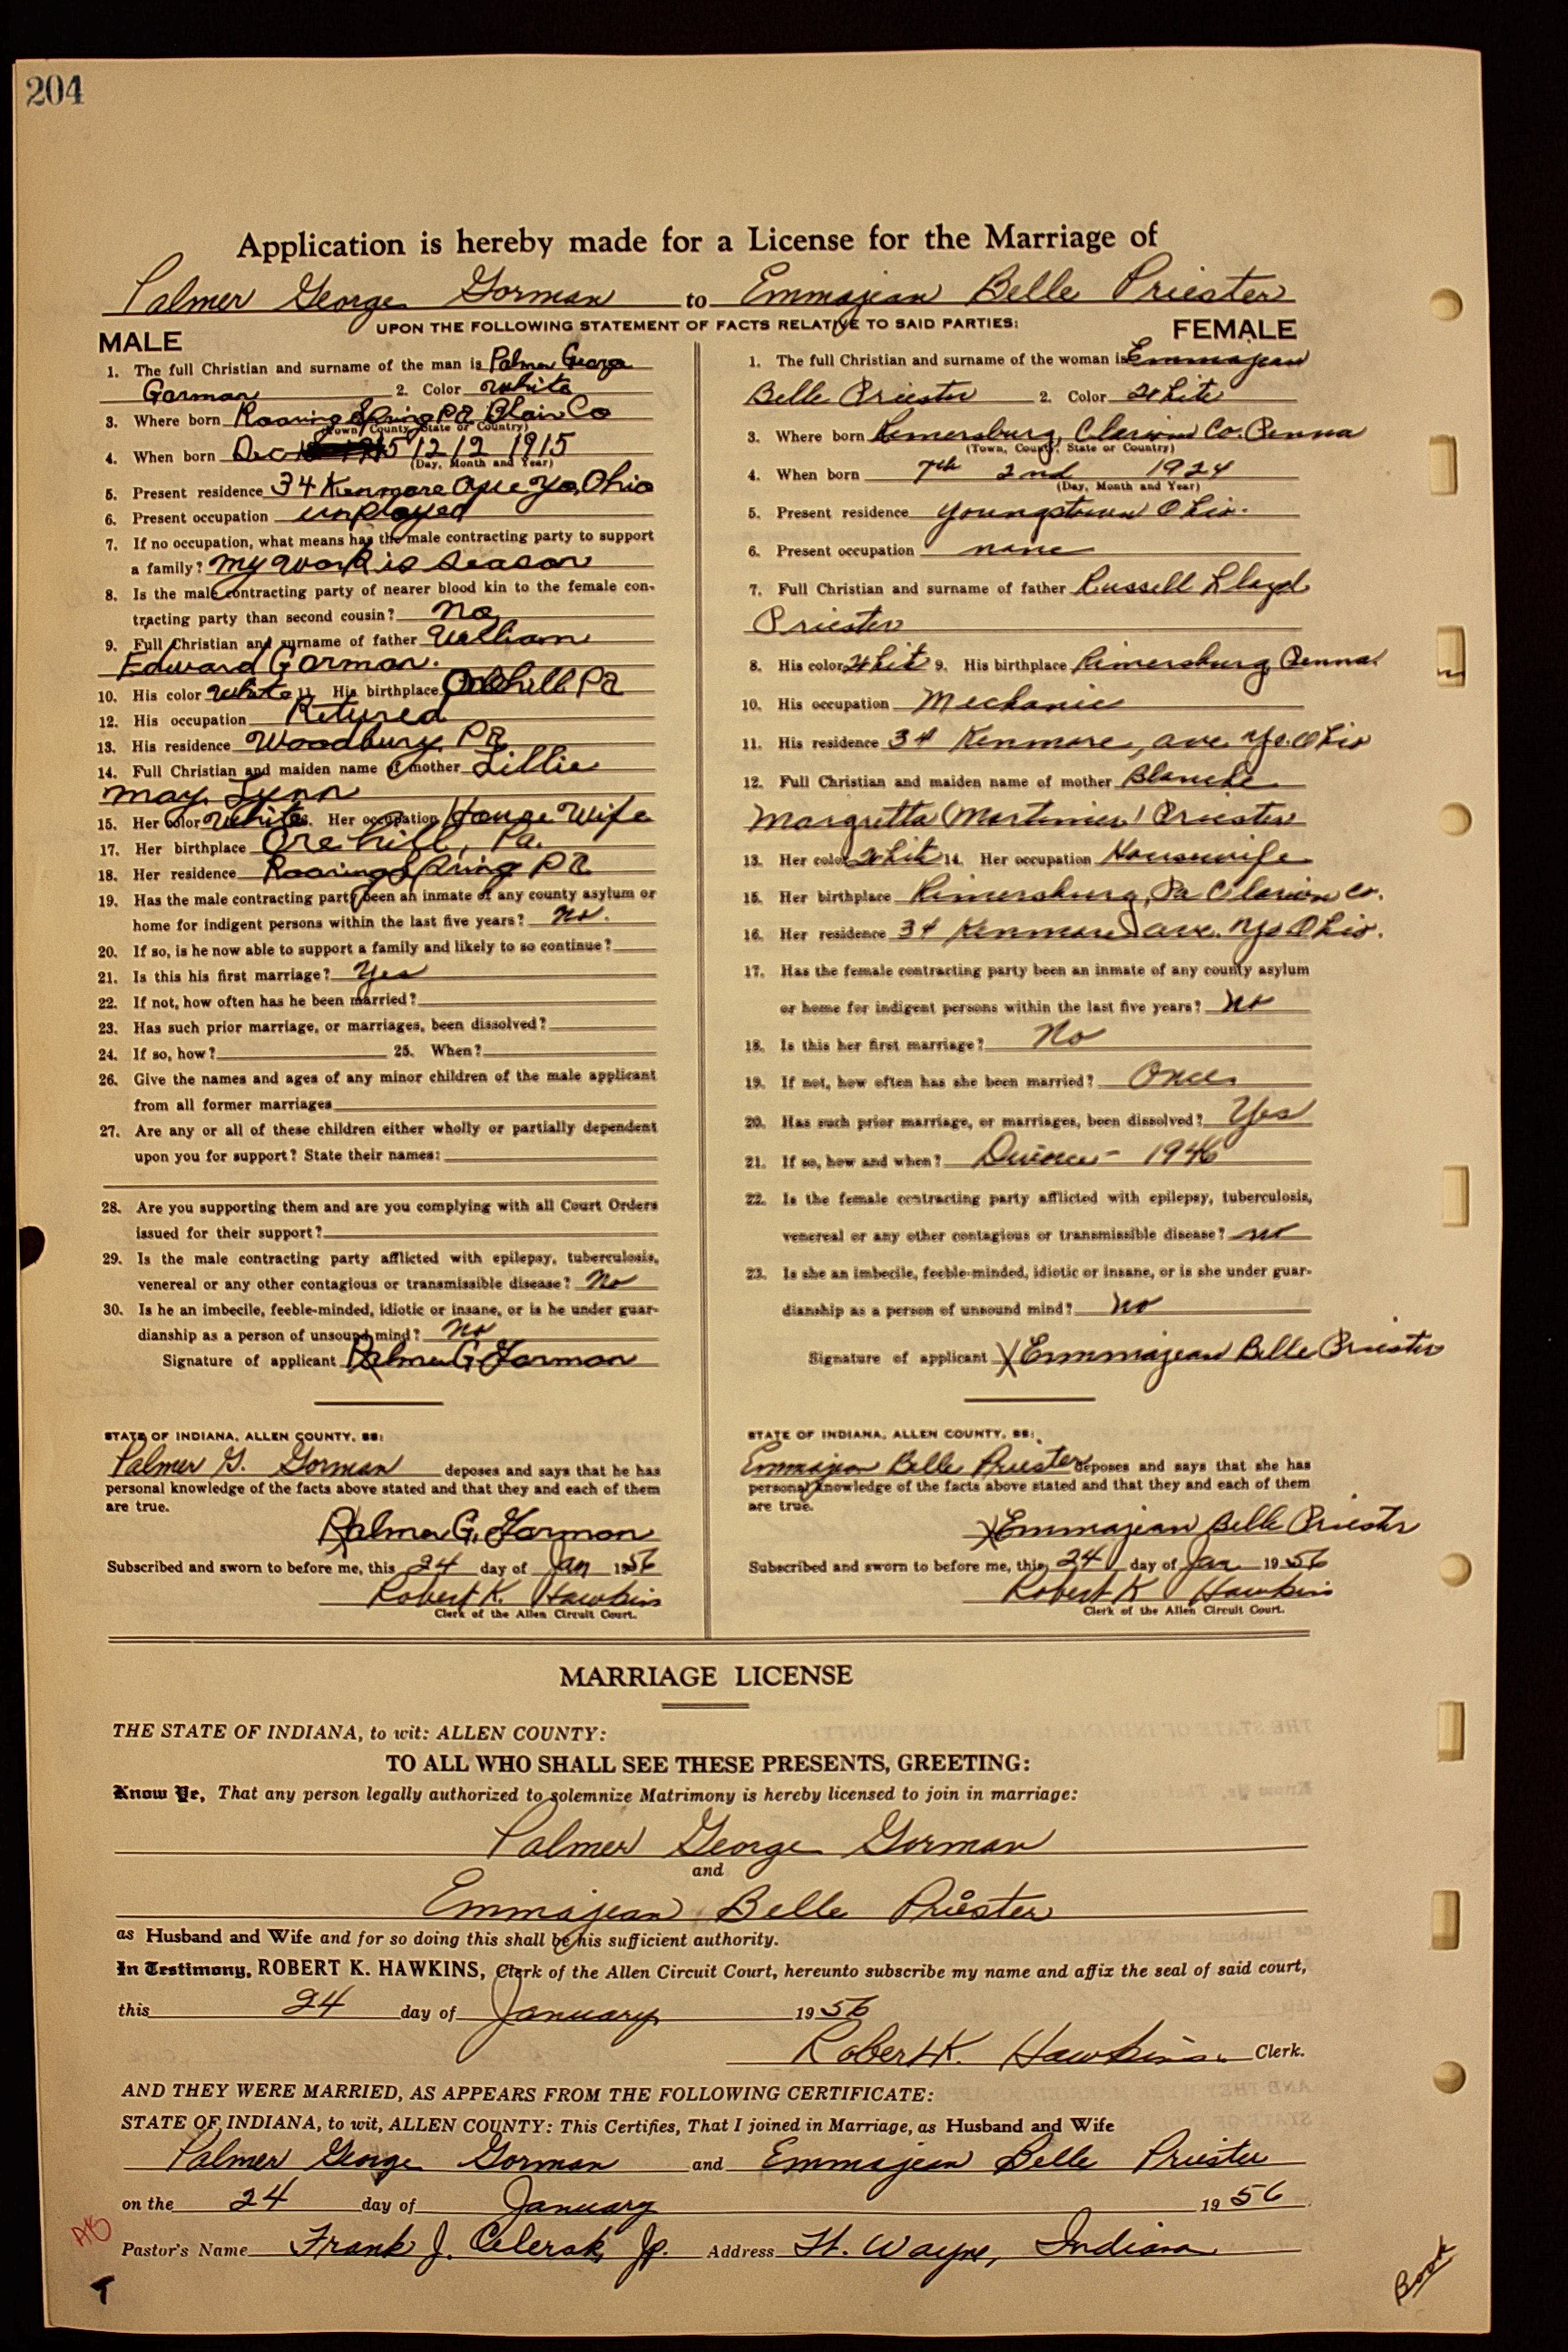 204
Application is hereby made for a License for the Marriage of
Palmer George Gorman to Emmajean Belle Priester
UPON THE FOLLOWING STATEMENT OF FACTS RELATIVE TO SAID PARTIES:
MALE
1. The full Christian and surname of the man is Palmer George
Gorman 2. Color White
3. Where born Roaring Spring PA Blair Co
(Town, County, State or Country)
4. When born Dec 12 12 1915
(Day, Month and Year)
5. Present residence 34 Kenmore Ave Yo, Ohio
6. Present occupation unployed
7. If no occupation, what means has the male contracting party to support
a family? my work is season
8. Is the male contracting party of nearer blood kin to the female con-
tracting party than second cousin? No
9. Full Christian and surname of father William
Edward Gorman.
10. His color White 11. His birthplace Orehill PA
12. His occupation Retured
13. His residence Woodbury PA
14. Full Christian and maiden name of mother Lillie
may Lynn
15. Her color White 16. Her occupation House Wife
17. Her birthplace Orehill, Pa.
18. Her residence Roaring Spring PA
19. Has the male contracting party been an inmate of any county asylum or
home for indigent persons within the last five years? no.
20. If so, is he now able to support a family and likely to so continue?
21. Is this his first marriage? Yes
22. If not, how often has he been married?
23. Has such prior marriage, or marriages, been dissolved?
24. If so, how? 25. When?
26. Give the names and ages of any minor children of the male applicant
from all former marriages
27. Are any or all of these children either wholly or partially dependent
upon you for support? State their names:
28. Are you supporting them and are you complying with all Court Orders
issued for their support?
29. Is the male contracting party afflicted with epilepsy, tuberculosis,
venereal or any other contagious or transmissible disease? No
30. Is he an imbecile, feeble-minded, idiotic or insane, or is he under guar-
dianship as a person of unsound mind? no
Signature of applicant Palmer G. Gorman
STATE OF INDIANA, ALLEN COUNTY, SS:
Palmer G. Gorman deposes and says that he has
personal knowledge of the facts above stated and that they and each of them
are true.
Palmer G. Gorman
Subscribed and sworn to before me, this 24 day of Jan 1956
Robert K. Hawkins
Clerk of the Allen Circuit Court.
FEMALE
1. The full Christian and surname of the woman is Emmajean
Belle Priester 2. Color White
3. Where born Rimersburg, Clarion Co. Penna
(Town, County, State or Country)
4. When born 7th 2nd 1924
(Day, Month and Year)
5. Present residence Youngstown Ohio.
6. Present occupation none
7. Full Christian and surname of father Russell Lloyd
Priester
8. His color White 9. His birthplace Rimersburg Penna.
10. His occupation Mechanic
11. His residence 34 Kenmore, ave Yo. Ohio
12. Full Christian and maiden name of mother Blanche
Margretta (Mortimer) Priester
13. Her color White 14. Her occupation Housewife
15. Her birthplace Rimersburg, Pa Clarion Co.
16. Her residence 34 Kenmore ave. Yo Ohio.
17. Has the female contracting party been an inmate of any county asylum
or home for indigent persons within the last five years? no
18. Is this her first marriage? No
19. If not, how often has she been married? Once
20. Has such prior marriage, or marriages, been dissolved? Yes
21. If so, how and when? Divorce - 1946
22. Is the female contracting party afflicted with epilepsy, tuberculosis,
venereal or any other contagious or transmissible disease? no
23. Is she an imbecile, feeble-minded, idiotic or insane, or is she under guar-
dianship as a person of unsound mind? no
Signature of applicant X Emmajean Belle Priester
STATE OF INDIANA, ALLEN COUNTY, SS:
Emmajean Belle Priester deposes and says that she has
personal knowledge of the facts above stated and that they and each of them
are true.
X Emmajean Belle Priester
Subscribed and sworn to before me, this 24 day of Jan 1956
Robert K Hawkins
Clerk of the Allen Circuit Court.
MARRIAGE LICENSE
THE STATE OF INDIANA, to wit: ALLEN COUNTY:
TO ALL WHO SHALL SEE THESE PRESENTS, GREETING:
Know Ye, That any person legally authorized to solemnize Matrimony is hereby licensed to join in marriage:
Palmer George Gorman
and
Emmajean Belle Priester
as Husband and Wife and for so doing this shall be his sufficient authority.
In Testimony, ROBERT K. HAWKINS, Clerk of the Allen Circuit Court, hereunto subscribe my name and affix the seal of said court,
this 24 day of January 1956
Robert K. Hawkins. Clerk.
AND THEY WERE MARRIED, AS APPEARS FROM THE FOLLOWING CERTIFICATE:
STATE OF INDIANA, to wit, ALLEN COUNTY: This Certifies, That I joined in Marriage, as Husband and Wife
Palmer George Gorman and Emmajean Belle Priester
on the 24 day of January 1956
Pastor's Name Frank J. Celerak, Jp. Address Ft. Wayne, Indiana
Book